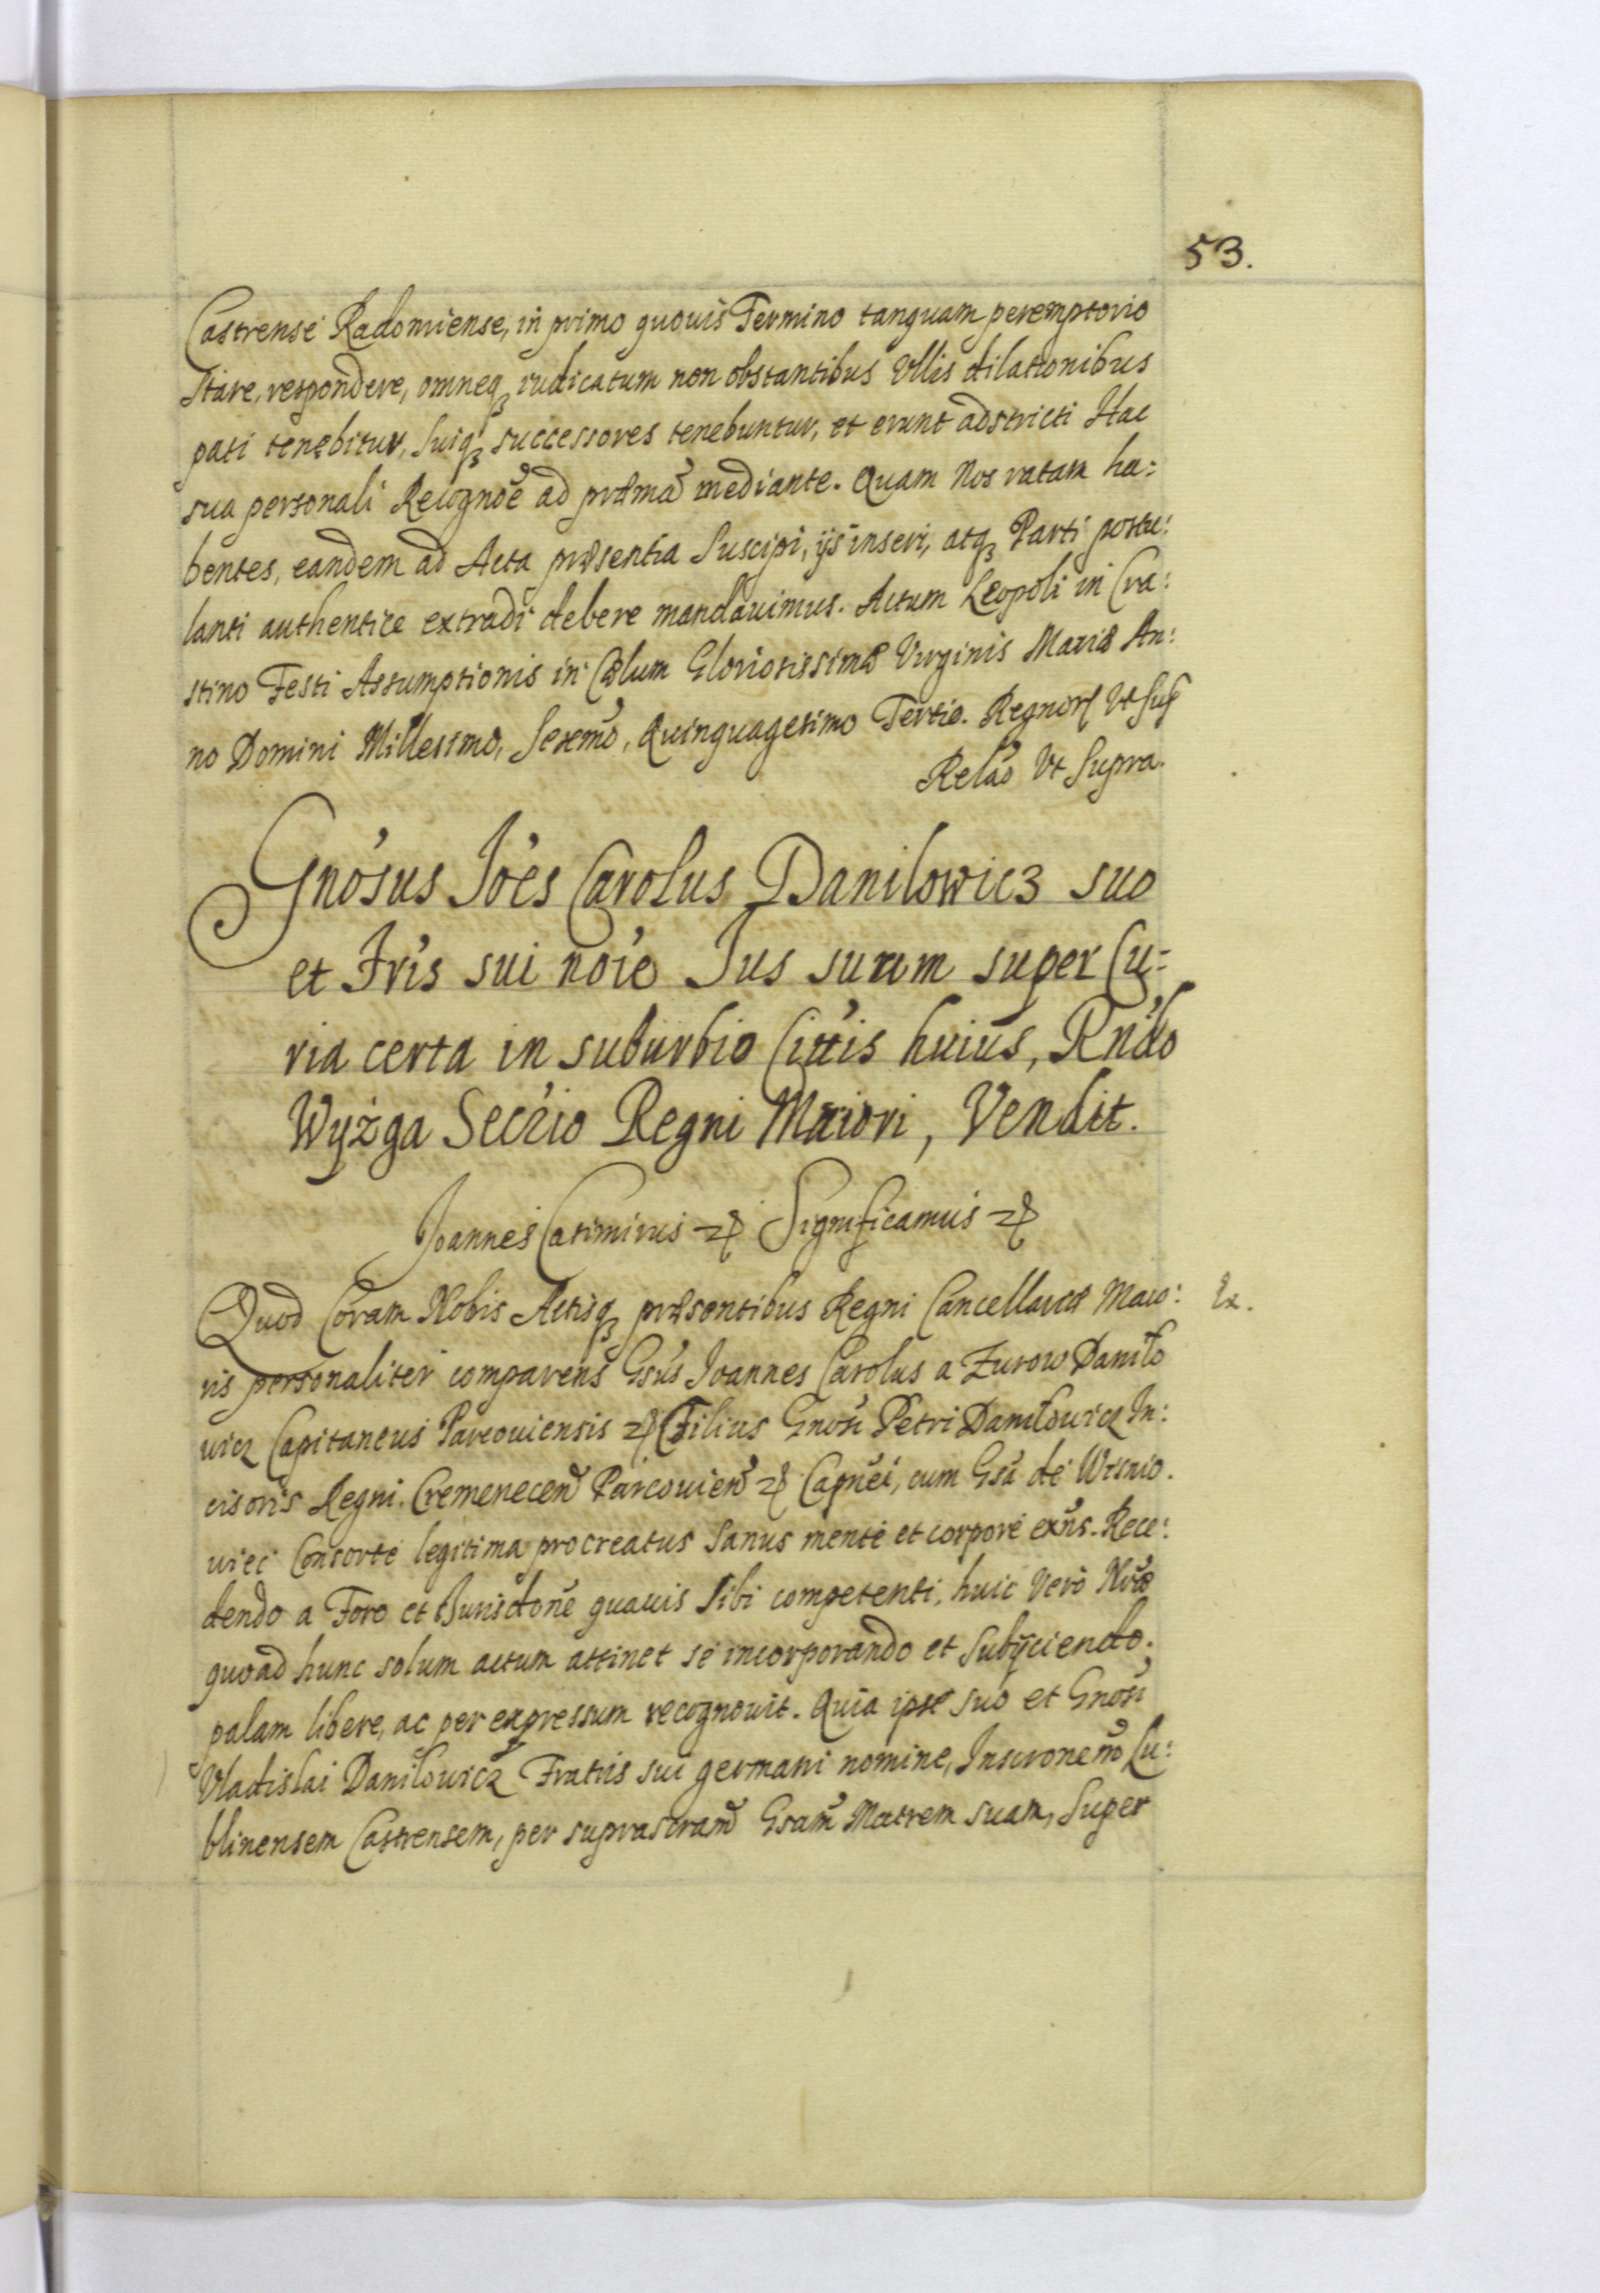 53.
Castrense Radomiense, in primo quovis Termino tanquam peremptorio
stare, respondere, omneq₃ iudicatum non obstantibus Ullis dilationibus
pati tenebitur, suiq₃ successores tenebuntur, et erunt adstricti Hac
sua personali Recognõe ad præmã mediante. Quam Nos ratam ha:
bentes, eandem ad Acta præsentia Suscipi, ijs inseri, atq₃ Parti postu:
lanti authentice extradi debere mandavimus. Actum Leopoli in Cra:
stino Festi Assumptionis in Cælum Gloriosissimæ Virginis Mariæ An:
no Domini Millesimo, Sexcmõ, Quinquagesimo Tertio. Regnorꝭ Vt sup
Relão Vt Supra.
Gnõsus Jões Carolus Danilowicz suo
et Fris sui nõie Jus suum super Cu:
ria certa in suburbio Cittis huius, Rndo
Wyżga Secrio Regni Maiori, Vendit.
Joannes Casimirus Significamus
Quod Coram Nobis Actisq₃ præsentibus Regni Cancellariæ Maio: Ex.
ris personaliter comparens Gsus Joannes Carolus a Zurow Danilo
wicz Capitaneus Parcoviensis Filius Gnosi Petri Danilowicz In:
cisoris Regni. Cremenecen Parcovien Capnei, cum Gsa de Wisnio.
viec Consorte legitima procreatus Sanus mente et corpore exns. Rece:
dendo a Foro et Jurisdone quavis sibi competenti, huic Vero Nræ
quoad hunc solum actum attinet se incorporando et Subijciendo;
palam libere, ac per expressum recognovit. Quia ipse suo et Gnosi
Vladislai Danilowicz Fratris sui germani nomine, Inscronem Lu:
blinensem Castrensem, per suprascram Gsam Matrem suam, Super